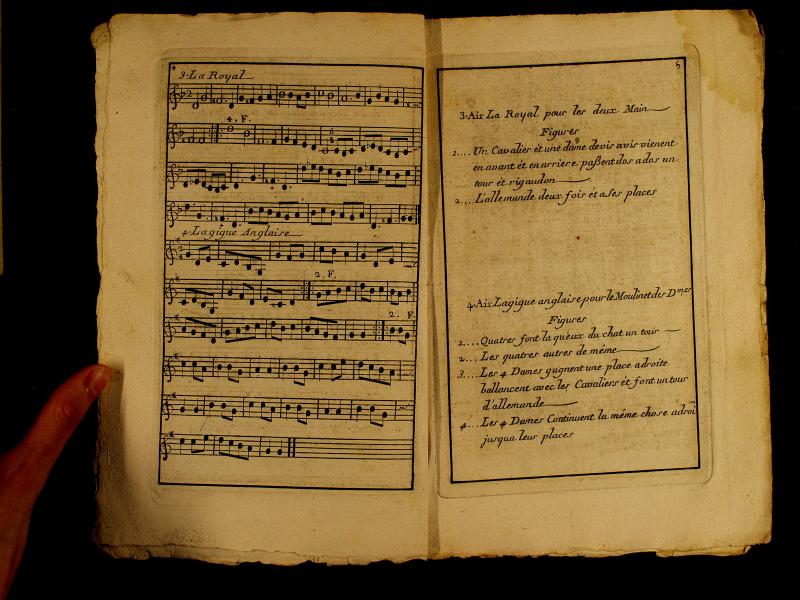 4
3. La Royal
4. F.
4. Lagigue Anglaise
2. F.
2. F.
5
3. Air La Royal pour les deux Main
Figures
1.... Un Cavalier et une dame devis avis vienent
en avant et en arriere, paßent dos a dos un
tour et rigaudon
2.... L'allemande deux fois et a ses places
4. Air Lagigue anglaise pour le Moulinet des D.mes
Figures
1.... Quatres font la queux du chat un tour
2.... Les quatres autres de même
3.... Les 4 Dames gagnent une place adroite
ballancent avec les Cavaliers et font un tour
d'allemande
4.... Les 4 Dames Continuent la même chose adroi
jusqua leur places